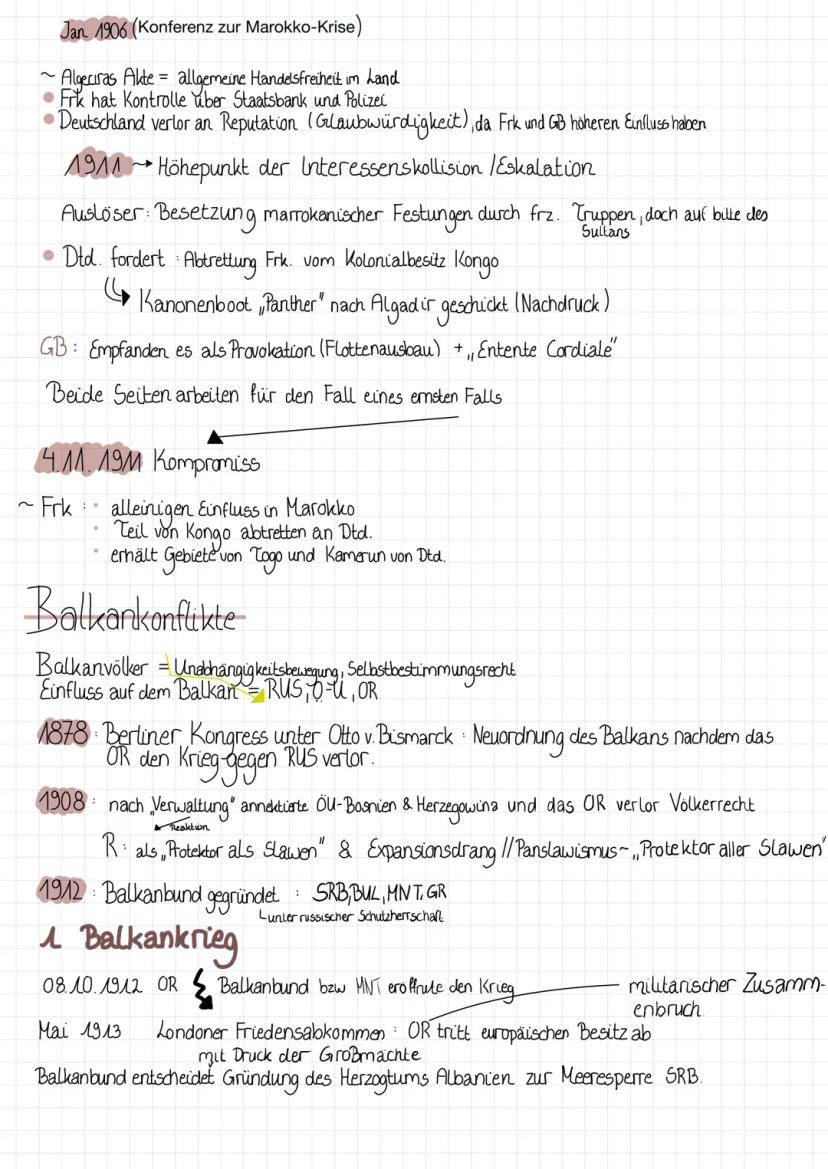 Jan 1906 (Konferenz zur Marokko-Krise)
~ Algeciras Akte = allgemeine Handelsfreiheit im Land
• Frk hat Kontrolle über Staatsbank und Polizei
• Deutschland verlor an Reputation (Glaubwürdigkeit), da Frk und GB höheren Einfluss haben
1911 → Höhepunkt der Interessenskollision / Eskalation
Auslöser: Besetzung marrokanischer Festungen durch frz. Truppen, doch auf bitte des
Sultans
• Dtd. fordert: Abtrettung Frk. vom Kolonialbesitz Kongo
Kanonenboot „Panther" nach Algadir geschickt (Nachdruck)
GB: Empfanden es als Provokation (Flottenausbau) + „Entente Cordiale"
Beide Seiten arbeiten für den Fall eines ernsten Falls
4.11.1911 Kompromiss
~ Frk: • alleinigen Einfluss in Marokko
• Teil von Kongo abtretten an Dtd.
• erhält Gebiete von Togo und Kamerun von Dtd.
Balkankonflikte
Balkanvölker = Unabhängigkeitsbewegung, Selbstbestimmungsrecht
Einfluss auf dem Balkan = RUS, Ö-U, OR
1878: Berliner Kongress unter Otto v. Bismarck: Neuordnung des Balkans nachdem das
OR den Krieg gegen RUS verlor.
1908: nach „Verwaltung" annektierte ÖU-Bosnien & Herzegowina und das OR verlor Völkerrecht
Reaktion
R: als „Protektor als Slawen" & Expansionsdrang // Panslawismus ~ „Protektor aller Slawen"
1912: Balkanbund gegründet: SRB, BUL, MNT, GR
unter russischer Schutzherrschaft
1 Balkankrieg
08.10.1912 OR Balkanbund bzw MNT eröffnete den Krieg
militärischer Zusamm-
enbruch
Mai 1913 Londoner Friedensabkommen: OR tritt europäischen Besitz ab
mit Druck der Großmächte
Balkanbund entscheidet Gründung des Herzogtums Albanien zur Meeresperre SRB.